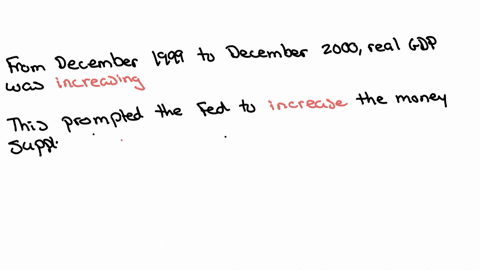 From December 1999 to December 2000, real GDP
was increasing
This prompted the Fed to increase the money